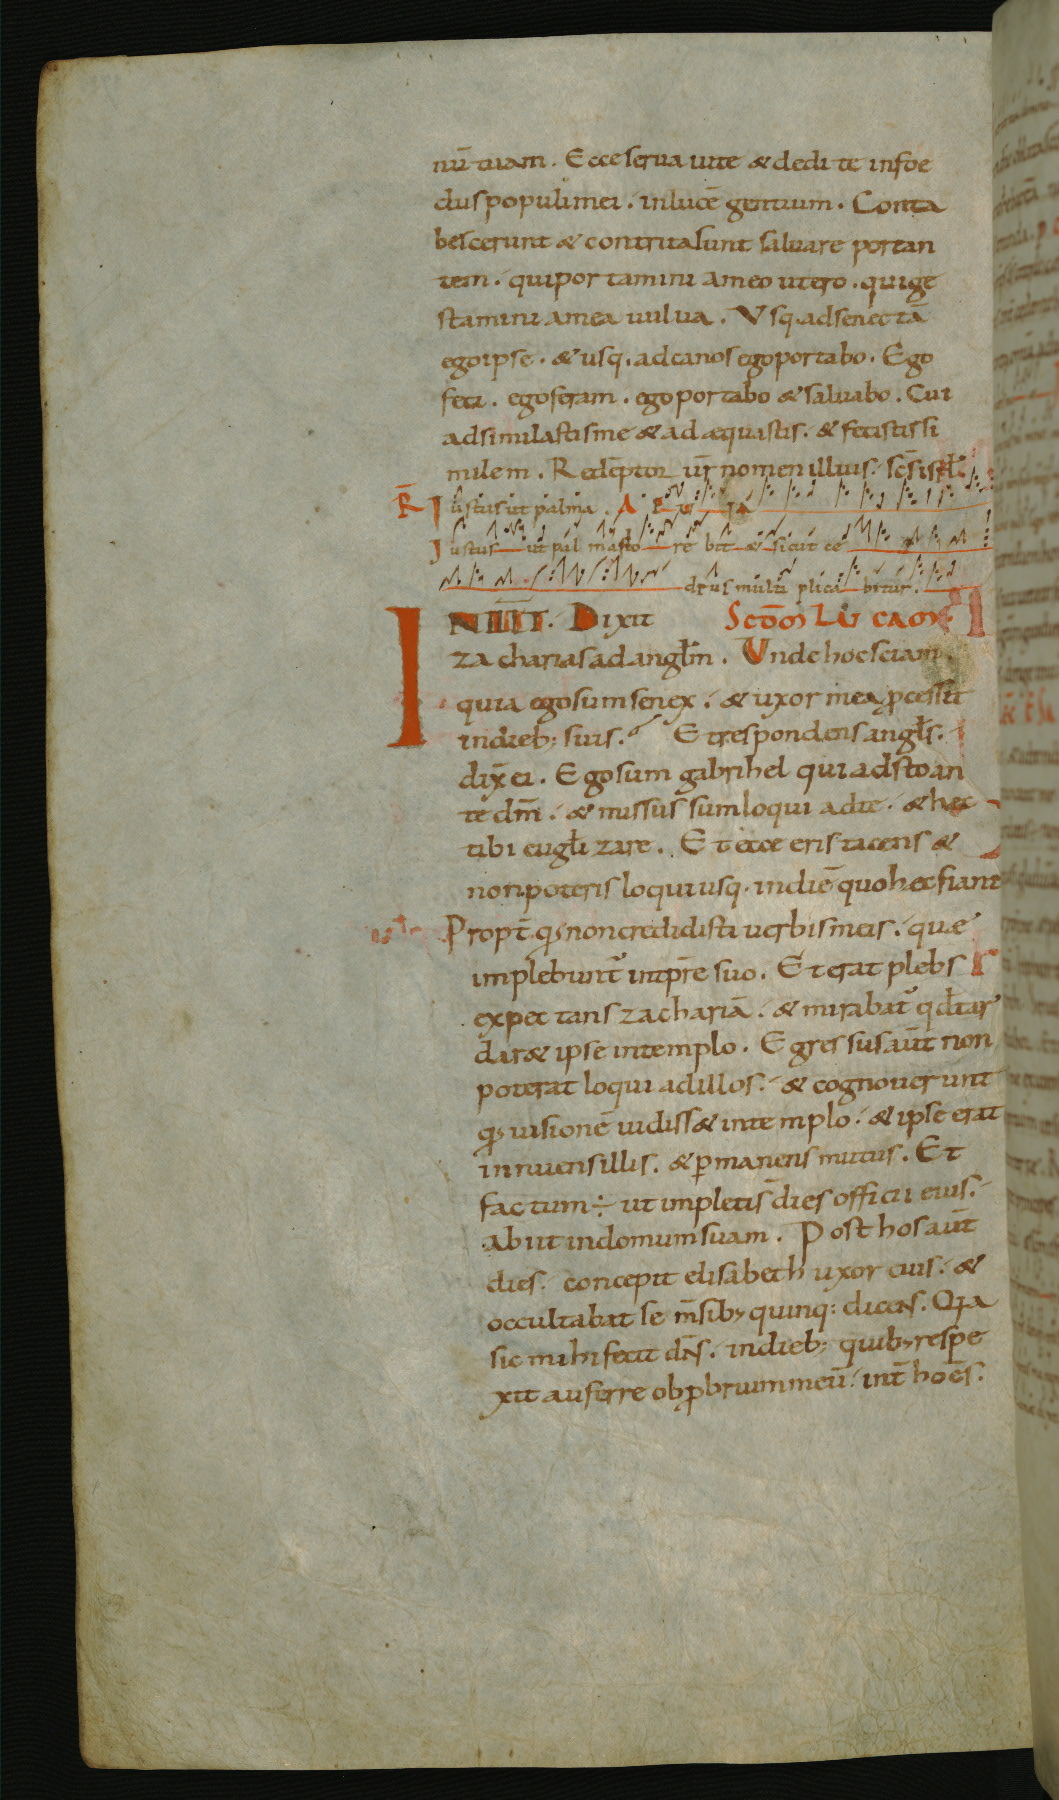 nū tuam. Ecce seruaui te & dedi te infoe
dus populi mei. inlucē gentium. Conta
bescerunt & contrita sunt saluare portan
tem. qui portamini ameo utero. qui ge
stamini amea uulua. Vsq. adsenectā
ego ipse. & usq. adcanos ego portabo. Ego
feci. ego feram. ego portabo & saluabo. Cui
adsimilastis me & adaequastis. & fecistis si
milem. Redēptor ur̄ nomen illius. sc̄s isrl̄.
R̄ Iustus ut palma. A E U IA
Iustus ut palma flo re bit & sicut ce
drus multi plica bitur.
IN ILLT. Dixit Scdm̄ Lucam.
zacharias ad angl̄m. Unde hoc sciam.
quia ego sum senex. & uxor mea p̄cessit
indieb; suis. Et respondens angl̄s.
dix̄ ei. Ego sum gabrihel qui adsto an
te dm̄. & missus sum loqui adte. & hęc
tibi eugl̄izare. Et ecce eris tacens &
non poteris loqui usq. indiē quo hęc fiant
Propt̄ qđ non credidisti uerbis meis. quae
implebunt̄ intp̄re suo. Et erat plebs
expectans zachariā. & mirabat̄ qđ tar
dar& ipse intemplo. Egressus aūt non
poterat loqui adillos. & cognouerunt
qđ uisionē uidiss& intemplo. & ipse erat
innuens illis. & p̄manens mutus. Et
factum ÷ ut impleti s̄ dies officii eius.
abiit indomum suam. Post hos aūt
dies. concepit elisabeth uxor eius. &
occultabat se m̄sib; quinq: dicens. Qia
sic mihi fecit dn̄s. indieb; quib; respe
xit auferre obp̄brium meū. int̄ hoēs.